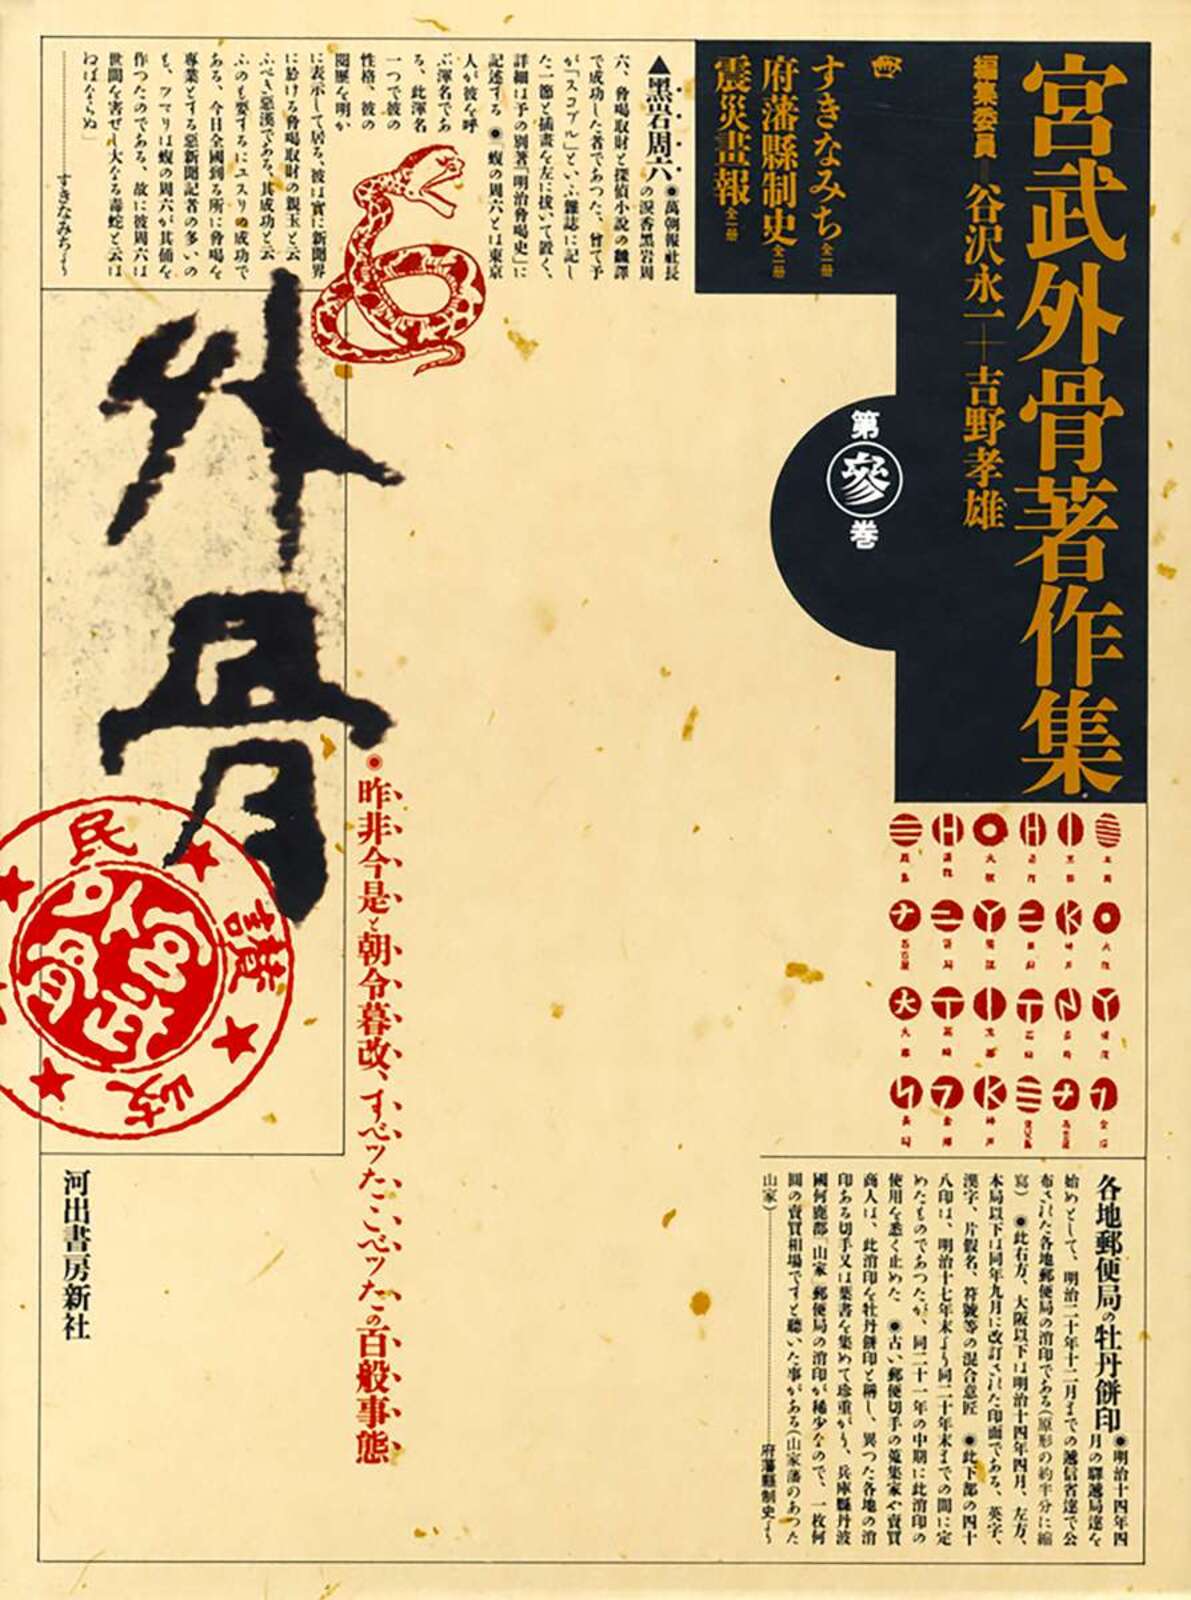 宮武外骨著作集
編集委員＝谷沢永一＋吉野孝雄
すきなみち 全一册
府藩縣制史 全一册
震災畫報 全一册
第參卷
▲黒岩周六●萬朝報社長
の涙香黒岩周
六、脅喝取財と探偵小說の飜譯
で成功した者であつた、曾て予
が「スコブル」といふ雜誌に記し
た一節と插畫を左に拔いて置く、
詳細は予の別著「明治脅喝史」に
記述する●「蝮の周六とは東京
人が彼を呼
ぶ渾名であ
る、此渾名
一つで彼の
性格、彼の
閲歷を明か
に表示して居る、彼は實に新聞界
に於ける脅喝取財の親玉と云
ふべき惡漢である、其成功と云
ふのも要するにユスリの成功で
ある、今日全國到る所に脅喝を
專業とする惡新聞記者の多いの
も、ツマリは蝮の周六が其俑を
作つたのである、故に彼周六は
世間を害せし大なる毒蛇と云は
ねばならぬ」
すきなみちより
外骨
●昨非今是と朝令暮改、すべツたこべツたの百般事態
民
讃
河出書房新社
各地郵便局の牡丹餅印●明治十四年四
月の驛遞局達を
始めとして、明治二十年十二月までの遞信省達で公
布された各地郵便局の消印である(原形の約半分に縮
寫)●此右方、大阪以下は明治十四年四月、左方、
本局以下は同年九月に改訂された印面である、英字、
漢字、片假名、符號等の混合意匠●此下部の四十
八印は、明治十七年末より同二十年末までの間に定
めたものであつたが、同二十一年の中期に此消印の
使用を悉く止めた●古い郵便切手の蒐集家や賣買
商人は、此消印を牡丹餅印と稱し、異つた各地の消
印ある切手又は葉書を集めて珍重がり、兵庫縣丹波
國何鹿郡「山家」郵便局の消印が稀少なので、一枚何
圓の賣買相場ですと聽いた事がある(山家藩のあつた
山家)
府藩縣制史より